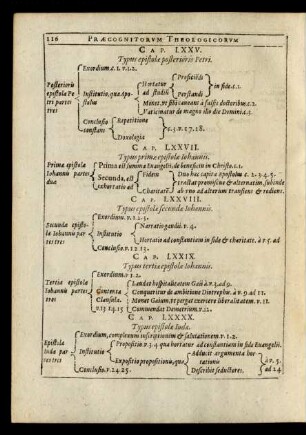 116 PRÆCOGNITORVM THEOLOGICORVM
CAP. LXXV.
Typus epistolæ posterioris Petri.
Exordium c.1. v.1.2.
Posterioris epistolæ Petri partes tres
Institutio, qua Apostolus
Hortatur ad studii
in fide c.1.
Monet, vt sibi caueant à falsis doctoribus c.2.
Vaticinatur de magno illo die Domini c.3.
Conclusio constans
Repetitione
Doxologia
c.3. v.17.18.
CAP. LXXVII.
Typus primæ epistolæ Iohannis.
Prima epistolæ Iohannis partes duæ
Prima est summa Euangelii, de beneficiis in Christo c.1.
Secunda, est exhortatio ad
Fidem
Charitatem
Duo hæc capita epistolæ c. 2.3.4.5.
tractat promiscuè & alternatim, subinde
ab vno ad alterum transiens & rediens.
CAP. LXXVIII.
Typus epistolæ secundæ Iohannis.
Secunda epistola Iohannis partes tres
Exordium. v.1.2.3.
Institutio
Narratio gaudii. v.4.
Hortatio ad constantiam in fide & charitate. à v.5. ad
Conclusio. v.12.13.
CAP. LXXIX.
Typus tertiæ epistolæ Iohannis.
Tertia epistola Iohannis partes tres
Exordium. v.1.2.
Sententia
Clausula. v.13.14.15
Laudat hospitalitatem Gaii à v.3. ad 9.
Conqueritur de ambitione Diotrephis à v.9. ad 11.
Monet Gaium, vt pergat exercere liberalitatem v.11.
Commendat Demetrium v.12.
CAP. LXXXX.
Typus epistolæ Iudæ.
Epistola Iudæ partes tres
Exordium, complectens inscriptionem & salutationem v.1.2.
Institutio
Propositio v.3.4. qua hortatur ad constantiam in fide Euangelii.
Expositio propositionis, qua
Adducit argumenta hortationis
Describit seductores.
à v.5. ad 24.
Conclusio. v.24.25.